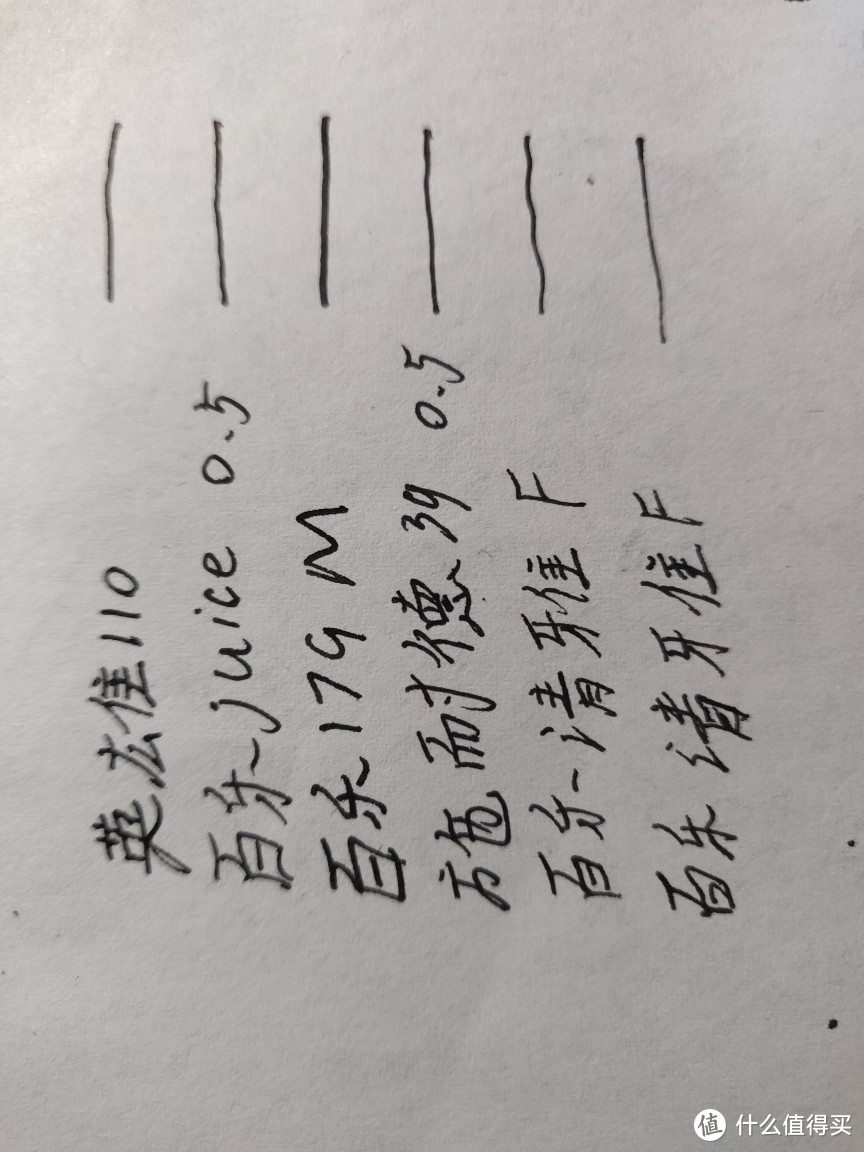 英雄110
百乐juice 0.5
百乐179 M
施耐德39 0.5
百乐清雅F
百乐清雅F
值 什么值得买